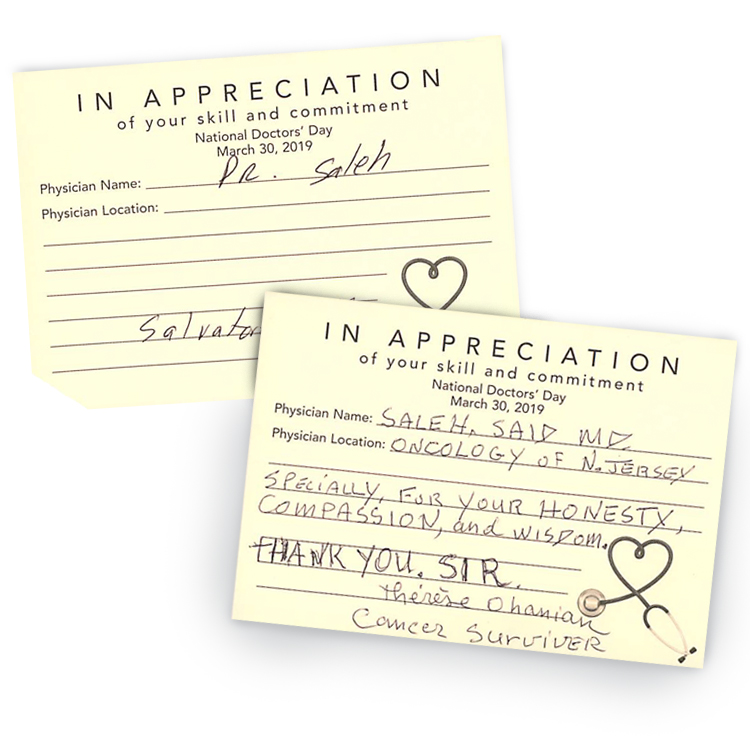 IN APPRECIATION
of your skill and commitment
National Doctors' Day
March 30, 2019
Physician Name: DR. Saleh
Physician Location:
IN APPRECIATION
of your skill and commitment
National Doctors' Day
March 30, 2019
Physician Name: SALEH, SAID MD
Physician Location: ONCOLOGY OF N. JERSEY
SPECIALLY, FOR YOUR HONESTY,
COMPASSION, and WISDOM.
THANK YOU. SIR.
thérèse Ohanian
Cancer SURVIVER